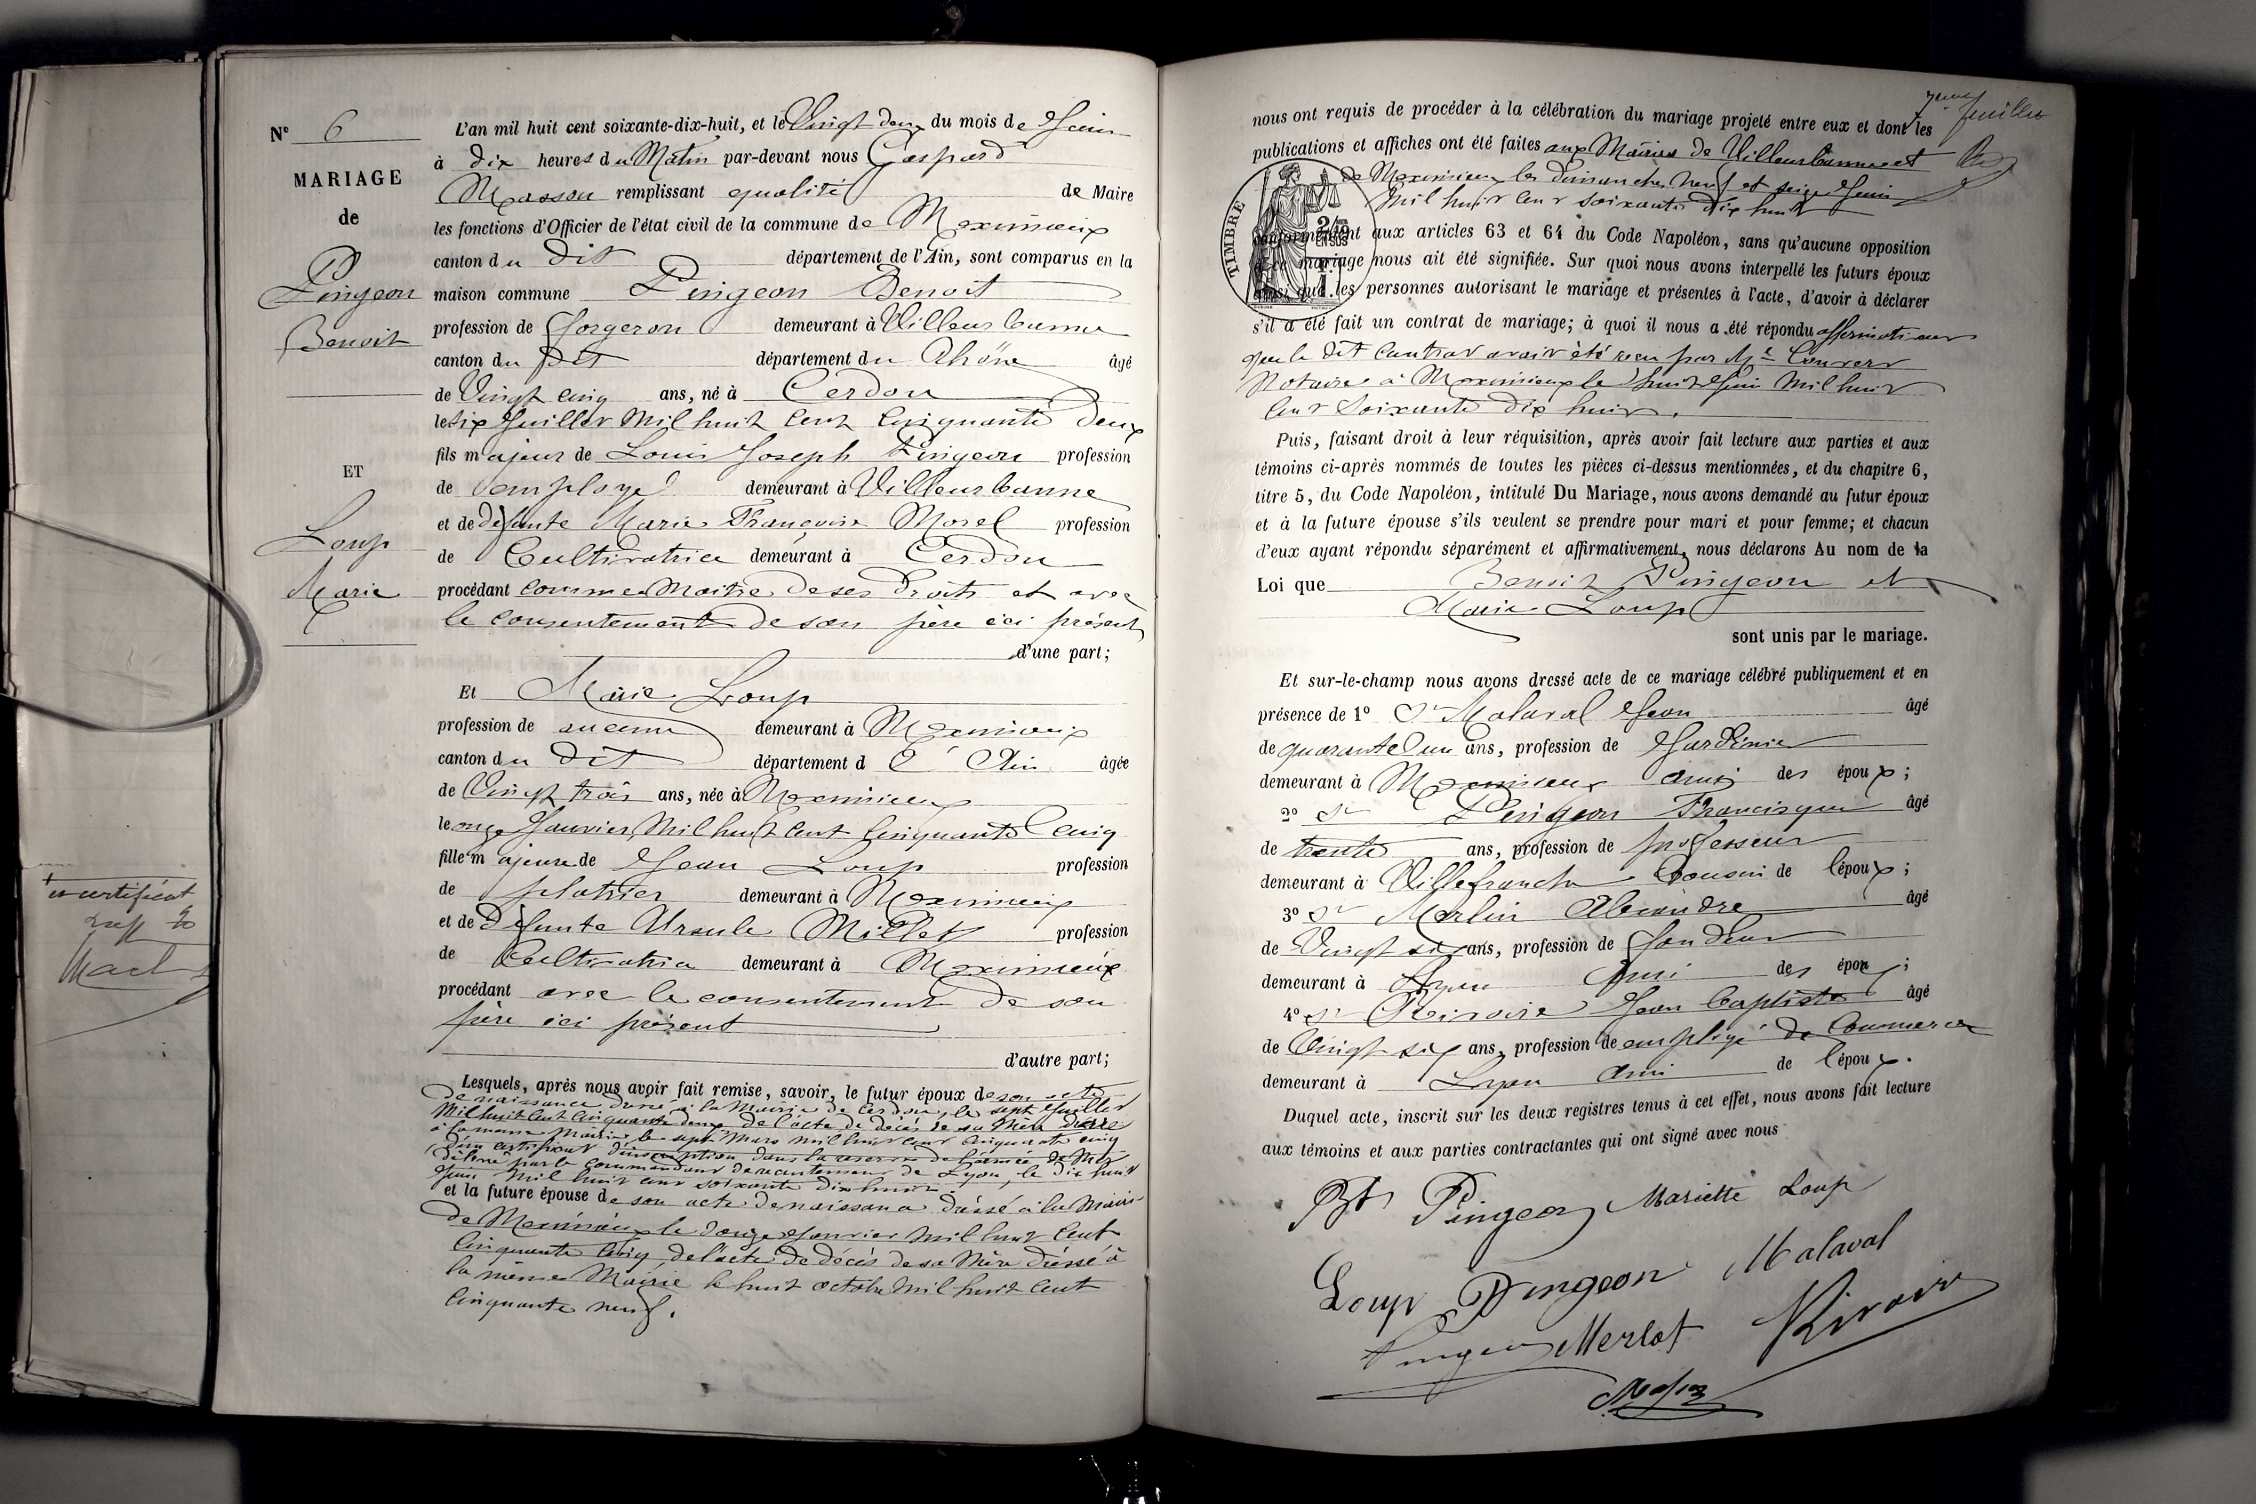 N° 6
MARIAGE
de
Pingeon
Benoit
ET
Loup
Marie
L'an mil huit cent soixante-dix-huit, et le Vingt deux du mois de Juin
à dix heures du Matin par-devant nous Gaspard
Masson remplissant qualité de Maire
les fonctions d'Officier de l'état civil de la commune de Meximieux
canton du dit département de l'Ain, sont comparus en la
maison commune Pingeon Benoit
profession de forgeron demeurant à Villeurbanne
canton du dit département du Rhône âgé
de Vingt cinq ans, né à Cerdon
le six Juillet Mil huit cent cinquante deux
fils majeur de Louis Joseph Pingeon profession
de employé demeurant à Villeurbanne
et de défunte Marie Françoise Morel profession
de Cultivatrice demeurant à Cerdon
procédant comme Maitre de ses droits et avec
le consentement de son père ici présent
d'une part;
Et Marie Loup
profession de aucune demeurant à Meximieux
canton du dit département d l'Ain âgée
de Vingt trois ans, née à Meximieux
le onze Janvier Mil huit cent cinquante cinq
fille majeure de Jean Loup profession
de platrier demeurant à Meximieux
et de Défunte Ursule Millet profession
de Cultivatrice demeurant à Meximieux
procédant avec le consentement de son
père ici présent
d'autre part;
Lesquels, après nous avoir fait remise, savoir, le futur époux de son acte
de naissance dressé à la Mairie de Cerdon, le sept Juillet
Mil huit cent cinquante deux de l'acte de décès de sa Mère dressé
à la même Mairie le sept Mars mil huit cent cinquante cinq
d'un certificat d'inscription dans la réserve de l'armée de Mer
délivré par le commandant de recrutement de Lyon, le dix huit
Juin Mil huit cent soixante dix huit
et la future épouse de son acte de naissance dressé à la Mairie
de Meximieux le douze Janvier Mil huit cent
cinquante cinq, de l'acte de décès de sa Mère dressé à
la même Mairie le huit octobre Mil huit cent
cinquante neuf.
un certificat
Mach
7eme feuillet
nous ont requis de procéder à la célébration du mariage projeté entre eux et dont les
publications et affiches ont été faites aux Mairies de Villeurbanne et
de Meximieux les dimanches neuf et seize Juin
Mil huit cent soixante dix huit
TIMBRE
2/10
EN SUS
conformément aux articles 63 et 64 du Code Napoléon, sans qu'aucune opposition
à ce mariage nous ait été signifiée. Sur quoi nous avons interpellé les futurs époux
ainsi que les personnes autorisant le mariage et présentes à l'acte, d'avoir à déclarer
s'il a été fait un contrat de mariage; à quoi il nous a été répondu affirmativement
que le dit contrat avait été reçu par Me
Notaire à Meximieux le huit Juin Mil huit
cent soixante dix huit.
Puis, faisant droit à leur réquisition, après avoir fait lecture aux parties et aux
témoins ci-après nommés de toutes les pièces ci-dessus mentionnées, et du chapitre 6,
titre 5, du Code Napoléon, intitulé Du Mariage, nous avons demandé au futur époux
et à la future épouse s'ils veulent se prendre pour mari et pour femme; et chacun
d'eux ayant répondu séparément et affirmativement, nous déclarons Au nom de la
Loi que Benoit Pingeon et
Marie Loup
sont unis par le mariage.
Et sur-le-champ nous avons dressé acte de ce mariage célébré publiquement et en
présence de 1° Sr Malaval Jean âgé
de quarante un ans, profession de Jardinier
demeurant à Meximieux ami des époux;
2° Sr Pingeon Francisque âgé
de trente ans, profession de professeur
demeurant à Villefranche Cousin de l'époux;
3° Sr Merlin Alexandre âgé
de Vingt six ans, profession de fondeur
demeurant à Lyon Ami des époux;
4° Sr Rivoire Jean Baptiste âgé
de Vingt six ans, profession de employé de Commerce
demeurant à Lyon Ami de l'époux.
Duquel acte, inscrit sur les deux registres tenus à cet effet, nous avons fait lecture
aux témoins et aux parties contractantes qui ont signé avec nous
Bt Pingeon Mariette Loup
Loup Pingeon Malaval
Pingeon Merlot Rivoire
Masson